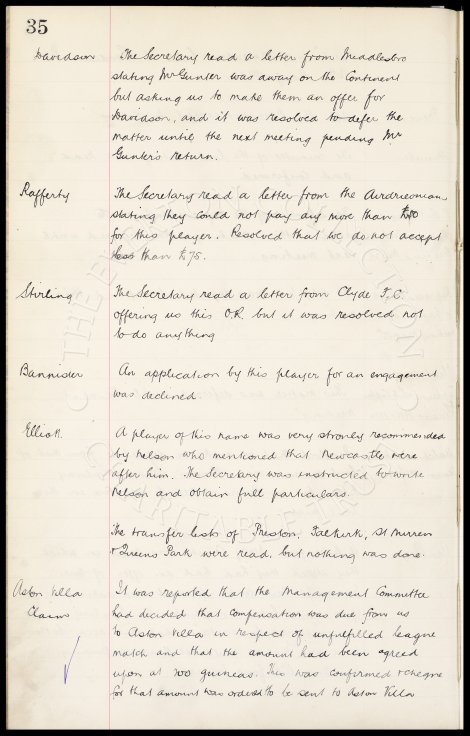 35
Davidson The Secretary read a letter from Middlesbro
stating Mr Gunter was away on the Continent
but asking us to make them an offer for
Davidson, and it was resolved to defer the
matter until the next meeting pending Mr
Gunter's return.
Rafferty The Secretary read a letter from the Airdrieonians
stating they could not pay any more than
for this player. Resolved that we do not accept
less than £75.
Stirling The Secretary read a letter from Clyde F.C.
offering us this O.R. but it was resolved not
to do anything
Bannister An application by this player for an engagement
was declined
Elliott A player of this name was very strongly recommended
by Nelson who mentioned that Newcastle were
after him. The Secretary was instructed to write
Nelson and obtain full particulars.
The transfer lists of Preston, Falkirk, St Mirren
+ Queens Park were read, but nothing was done.
Aston Villa It was reported that the Management Committee
Claim had decided that compensation was due from us
to Aston Villa in respect of unfulfilled league
match and that the amount had been agreed
upon at 700 guineas. This was confirmed + cheque
for that amount was ordered to be sent to Aston Villa
THE EVERTON COLLECTION
CHARITABLE TRUST